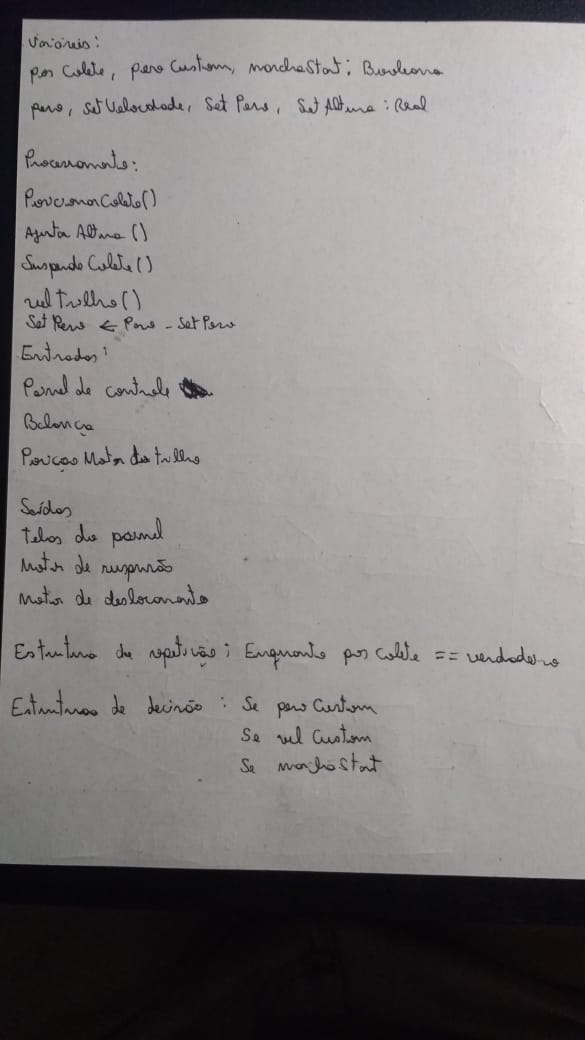 Variáveis:
pos Colete, peso Custom, marchaStart: Booleano
peso, SetVelocidade, Set Peso, Set Altura: Real
Processamento:
PosicionaColete()
Ajusta Altura ()
Suspende Colete()
velTrilho()
Set Peso ← Peso - Set Peso
Entradas:
Painel de controle
Balança
Posição Motor do trilho
Saídas
Telas do painel
Motor de suspensão
Motor de deslocamento
Estrutura de repetição: Enquanto pos colete == verdadeiro
Estruturas de decisão: Se peso Custom
Se vel Custom
Se marchaStart